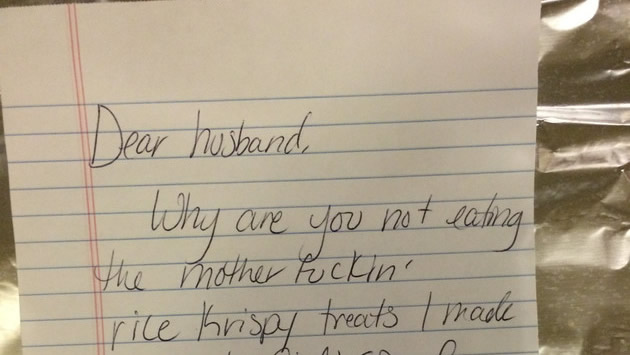 Dear husband,
Why are you not eating
the mother fuckin'
rice krispy treats I made